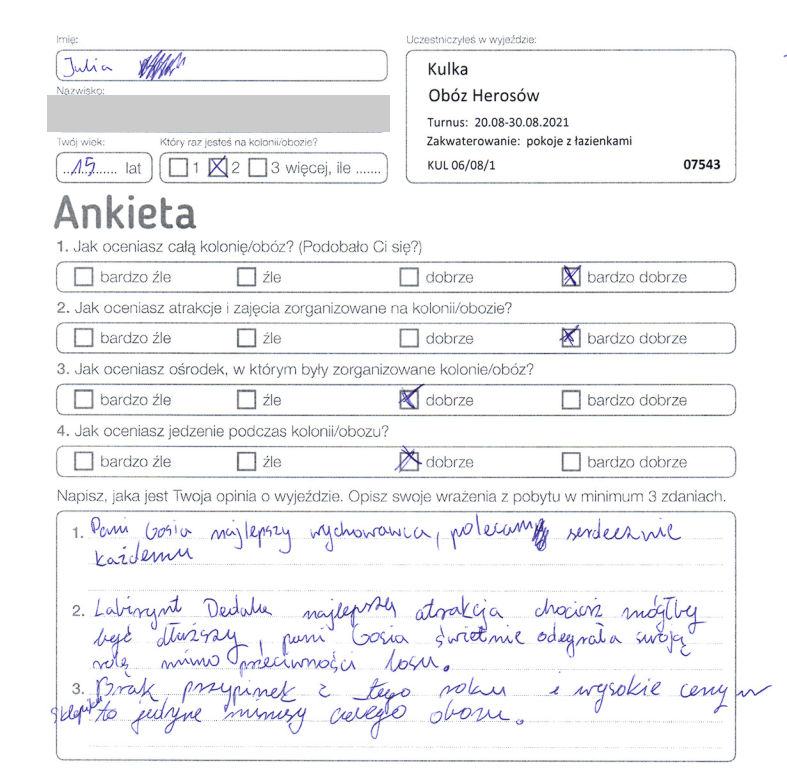 Imię:
Julia
Uczestniczyłeś w wyjeździe:
Kulka
Obóz Herosów
Turnus: 20.08-30.08.2021
Zakwaterowanie: pokoje z łazienkami
KUL 06/08/1 07543
Nazwisko:
Twój wiek: Który raz jesteś na kolonii/obozie?
15 lat 1 2 3 więcej, ile .......
Ankieta
1. Jak oceniasz całą kolonię/obóz? (Podobało Ci się?)
bardzo źle źle dobrze bardzo dobrze
2. Jak oceniasz atrakcje i zajęcia zorganizowane na kolonii/obozie?
bardzo źle źle dobrze bardzo dobrze
3. Jak oceniasz ośrodek, w którym były zorganizowane kolonie/obóz?
bardzo źle źle dobrze bardzo dobrze
4. Jak oceniasz jedzenie podczas kolonii/obozu?
bardzo źle źle dobrze bardzo dobrze
Napisz, jaka jest Twoja opinia o wyjeździe. Opisz swoje wrażenia z pobytu w minimum 3 zdaniach.
1. Pani Gosia najlepszy wychowawca, polecam serdecznie
każdemu
2. Labirynt Dedala najlepsza atrakcja chociaż mógłby
być dłuższy, pani Gosia świetnie odegrała swoją
rolę mimo przeciwności losu.
3. Brak przypinek z tego roku i wysokie ceny w
sklepiku to jedyne minusy całego obozu.